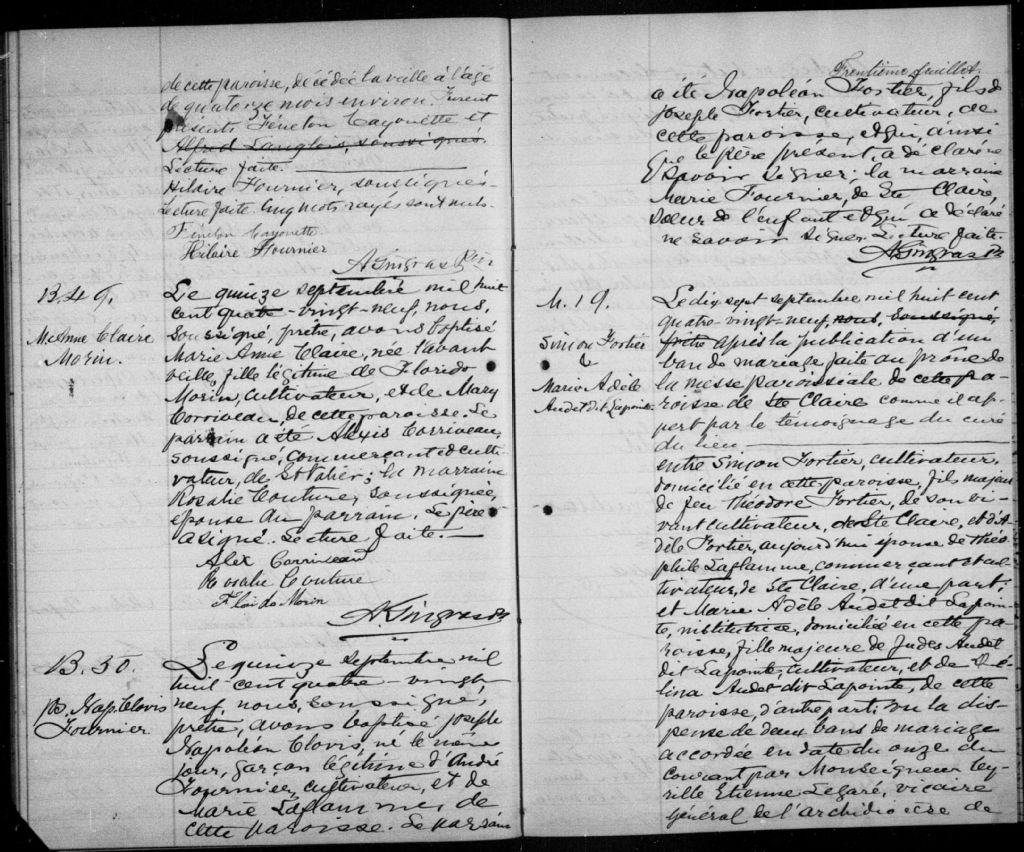 de cette paroisse, décédée la veille à l'âge
de quatorze mois environ. Furent
présents Fénelon Cayouette et
Alfred Langlois, soussignés.
Lecture faite.
Hilaire Fournier, soussignés.
Lecture faite. Cinq mots rayés sont nuls.
Fénelon Cayouette
Hilaire Fournier
A Gingras Ptre
B. 49.
M. Anne Claire
Morin.
Le quinze septembre mil huit
cent quatre-vingt-neuf, nous,
soussigné, prêtre, avons baptisé
Marie Anne Claire, née l'avant
veille, fille légitime de Florido
Morin, cultivateur, et de Mary
Corriveau, de cette paroisse. Le
parrain a été Alexis Corriveau,
soussigné, commerçant et culti-
vateur, de St Valier; la marraine
Rosalie Couture, soussignée,
épouse du parrain. Le père
a signé. Lecture faite.
Alex Corriveau
Rosalie Couture
Florido Morin
A Gingras Ptre
B. 50.
Jos. Nap. Clovis
Fournier
Le quinze septembre mil
huit cent quatre-vingt-
neuf, nous, soussigné,
prêtre, avons baptisé Joseph
Napoléon Clovis, né le même
jour, garçon légitime d'André
Fournier, cultivateur, et de
Marie Laflamme, de
cette paroisse. Le parrain
Trentième feuillet.
a été Napoléon Fortier, fils de
Joseph Fortier, cultivateur, de
cette paroisse, et qui, ainsi
que le père présent, a déclaré ne
savoir signer; la marraine
Marie Fournier, de Ste Claire
sœur de l'enfant et qui a déclaré
ne savoir signer. Lecture faite.
A Gingras Ptre
M. 19.
Simon Fortier
&
Marie Adèle
Audet dit Lapointe.
Le dix sept septembre mil huit cent
quatre-vingt-neuf, nous, soussigné,
prêtre après la publication d'un
ban de mariage faite au prône de
la messe paroissiale de cette pa-
roisse de Ste Claire comme il ap-
pert par le témoignage du curé
du lieu
entre Simon Fortier, cultivateur,
domicilié en cette paroisse, fils majeur
de feu Théodore Fortier, de son vi-
vant cultivateur, de Ste Claire, et d'A-
dèle Fortier, aujourd'hui épouse de Théo-
phile Laflamme, commerçant et cul-
tivateur, de Ste Claire, d'une part;
et Marie Adèle Audet dit Lapoin-
te, institutrice, domiciliée en cette pa-
roisse, fille majeure de Judes Audet
dit Lapointe, cultivateur, et de
Audet dit Lapointe, de cette
paroisse, d'autre part; vu la dis-
pense de deux bans de mariage
accordée en date du onze du
courant par Monseigneur Cy-
rille Etienne Legaré, vicaire
général de l'archidiocèse de